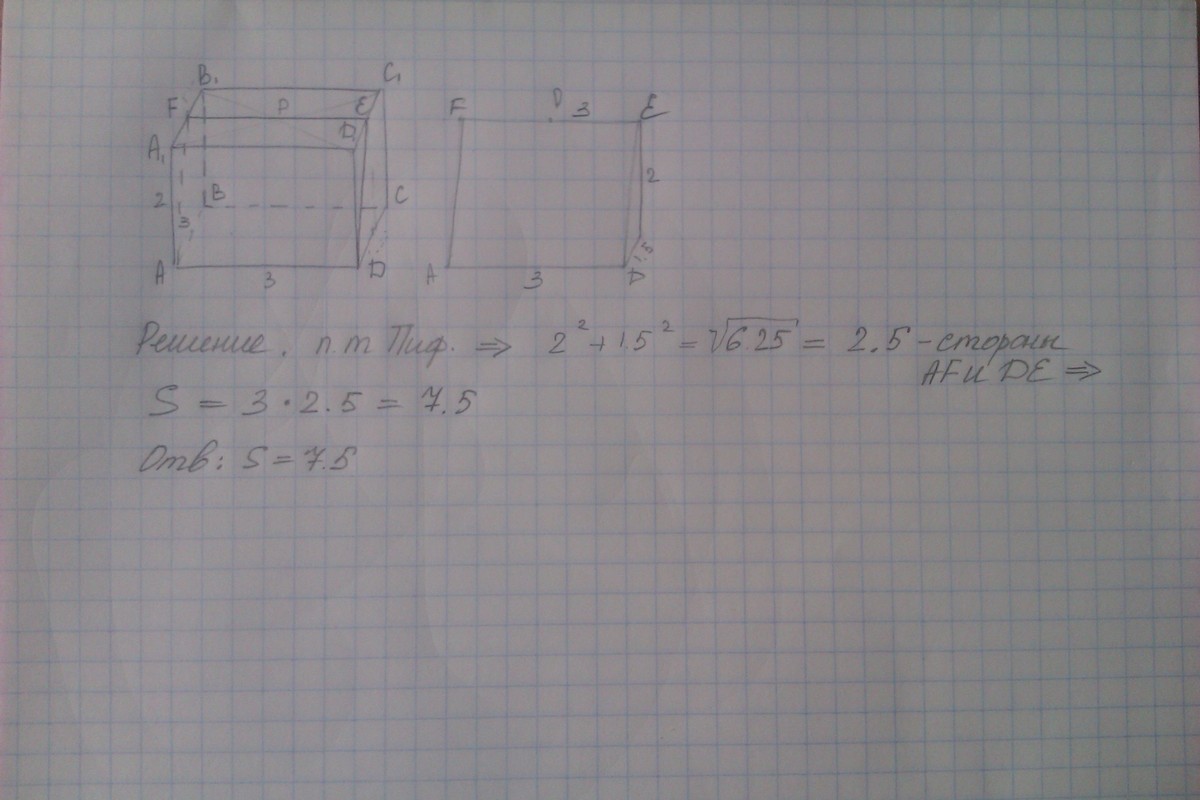 B₁ C₁
F P E
A₁ D₁
2 B C
3
A 3 D
F P 3 E
2
1.5
A 3 D
Решение. п.т Пиф. ⇒ 2² + 1.5² = √6.25 = 2.5 - стороны
AF и DE ⇒
S = 3 · 2.5 = 7.5
Отв: S = 7.5